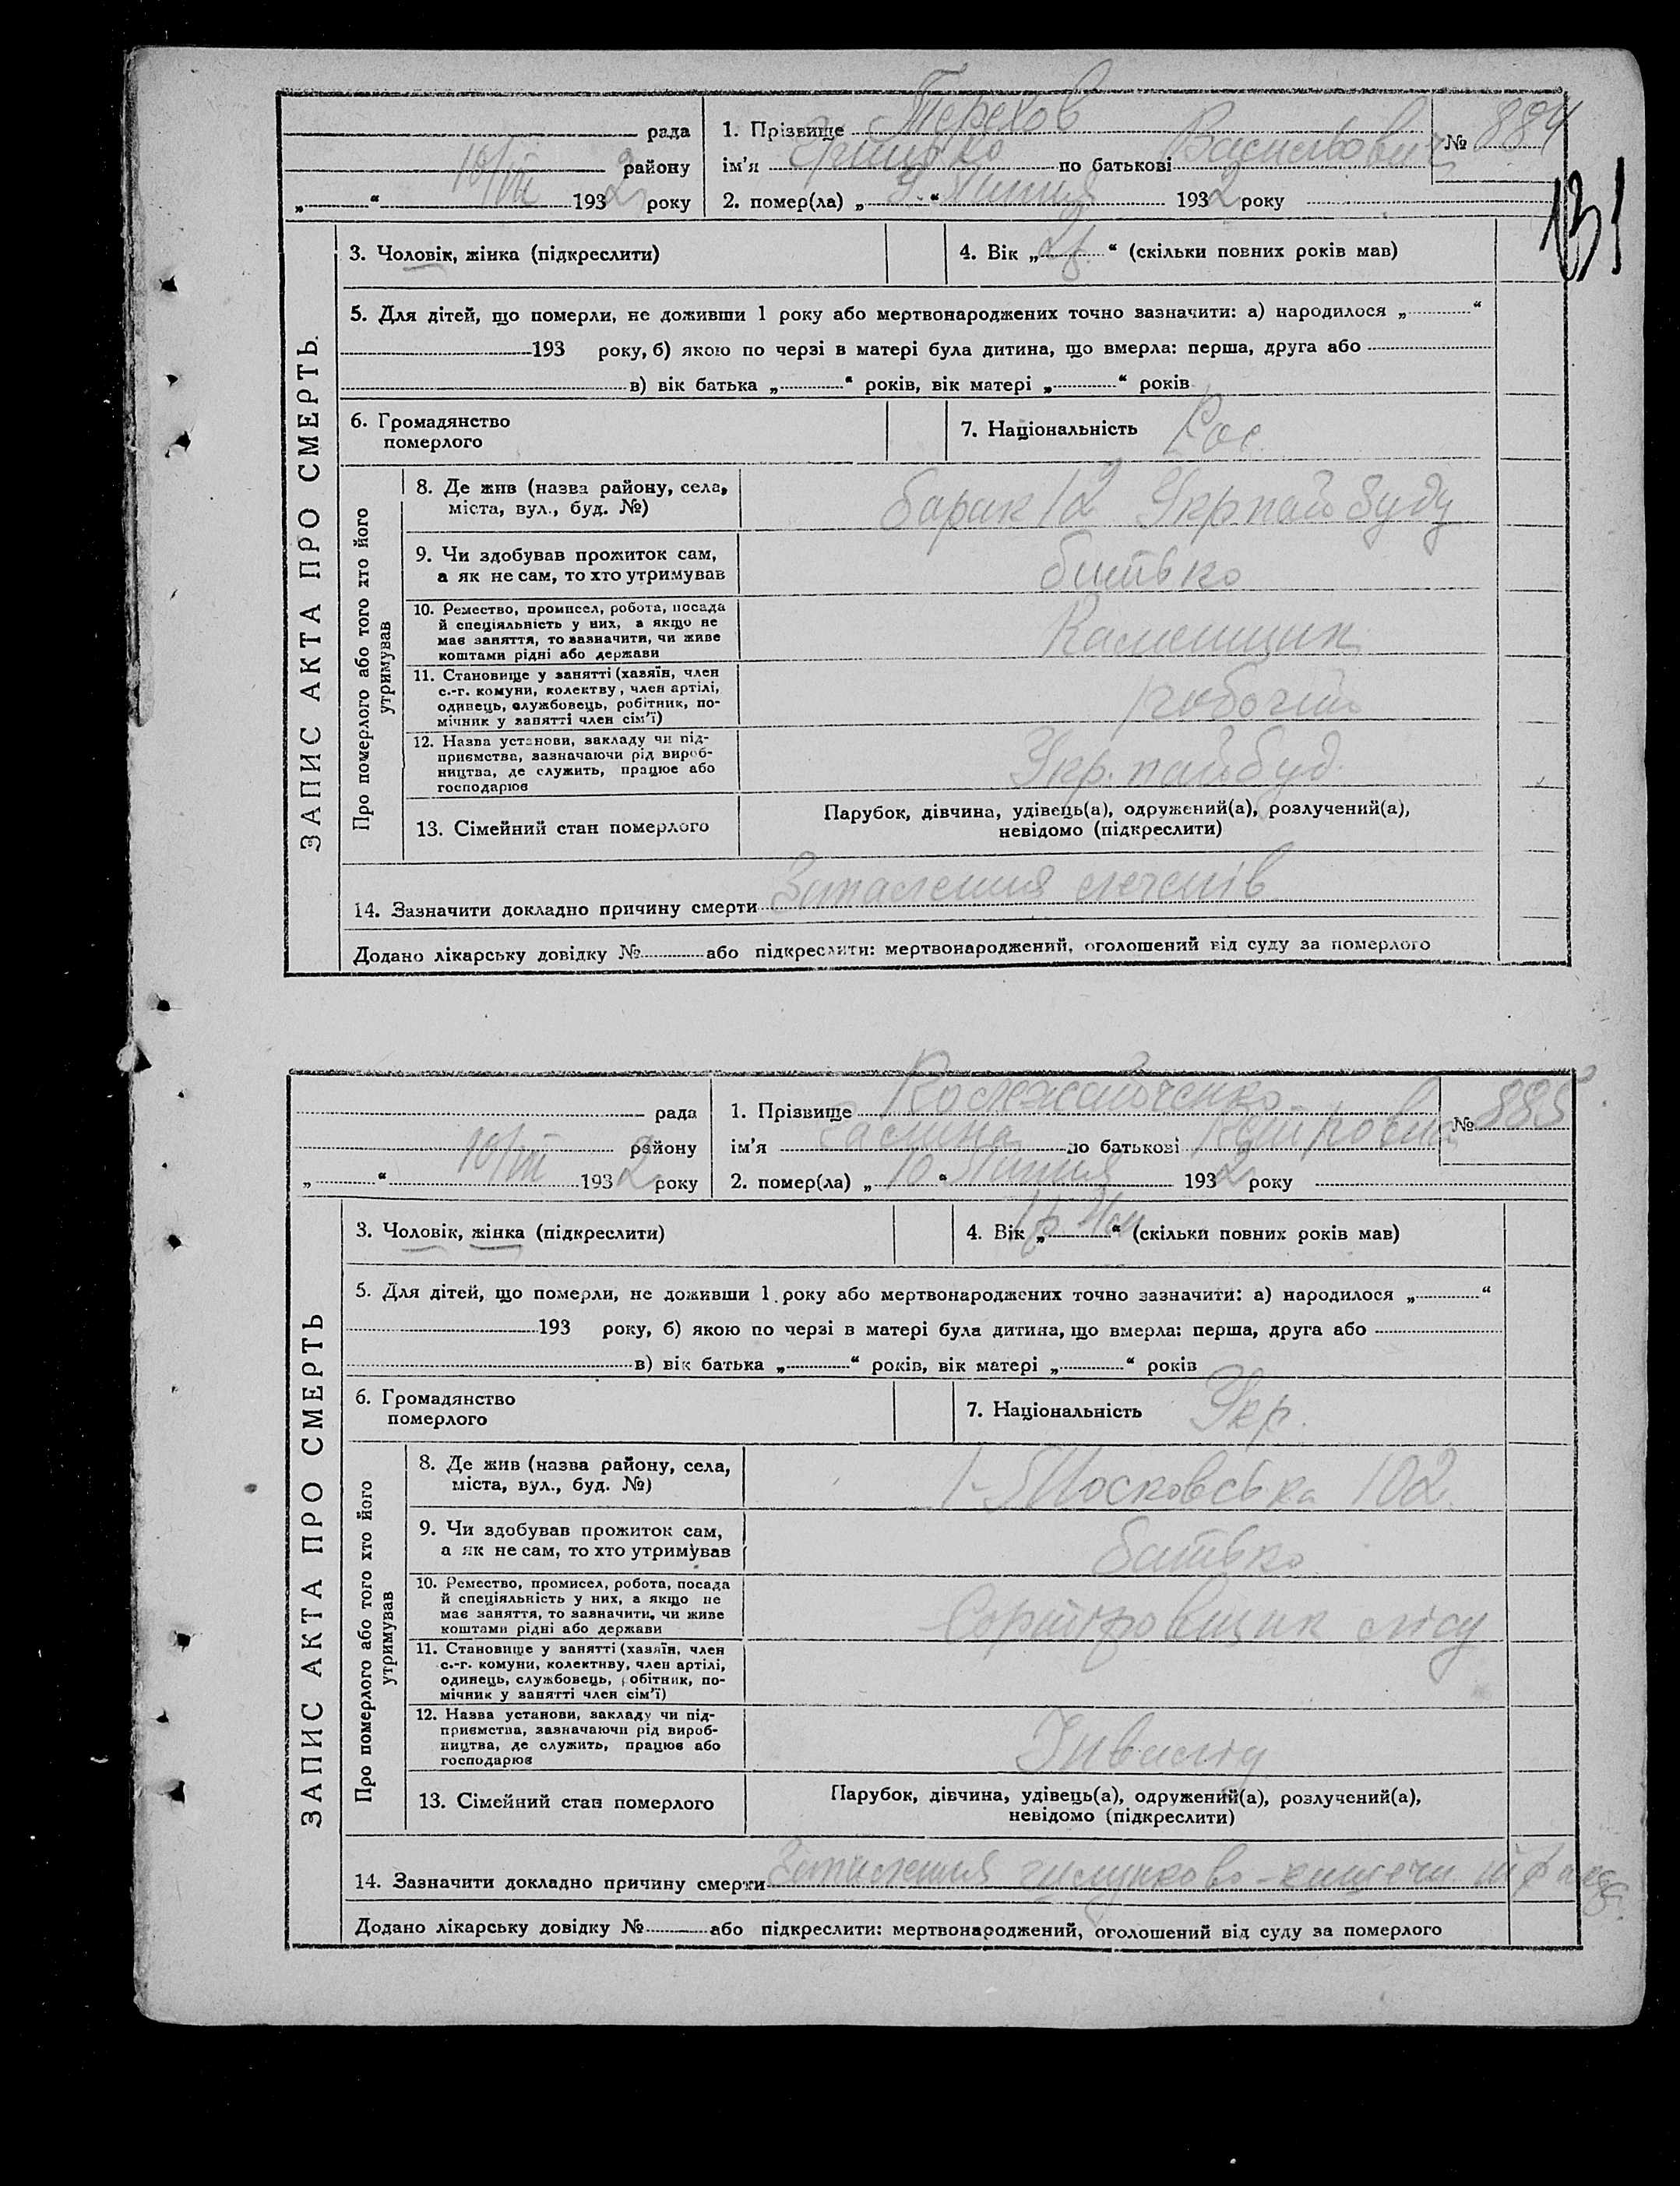 рада
району
10/VII 1932 року
1. Прізвище Терехов
ім'я Грицько по батькові Васильович
2. помер(ла) „ 9 “ Липня 1932 року
№ 884
131
ЗАПИС АКТА ПРО СМЕРТЬ.
3. Чоловік, жінка (підкреслити)
4. Вік „ 2 р. “ (скільки повних років мав)
5. Для дітей, що померли, не доживши 1 року або мертвонароджених точно зазначити: а) народилося „ “
193 року, б) якою по черзі в матері була дитина, що вмерла: перша, друга або
в) вік батька „ “ років, вік матері „ “ років
6. Громадянство
померлого
7. Національність Рос.
Про померлого або того хто його
утримував
8. Де жив (назва району, села,
міста, вул., буд. №)
барак 12 Укрпайбуду
9. Чи здобував прожиток сам,
а як не сам, то хто утримував
батько
10. Ремество, промисел, робота, посада
й спеціяльність у них, а якщо не
має заняття, то зазначити, чи живе
коштами рідні або держави
Каменщик
11. Становище у занятті (хазяїн, член
с.-г. комуни, колектву, член артілі,
одинець, службовець, робітник, по-
мічник у занятті член сім'ї)
робочий
12. Назва установи, закладу чи під-
приємства, зазначаючи рід вироб-
ництва, де служить, працює або
господарює
Укр.пайбуд.
13. Сімейний стан померлого
Парубок, дівчина, удівець(а), одружений(а), розлучений(а),
невідомо (підкреслити)
14. Зазначити докладно причину смерти Запалення легенів
Додано лікарську довідку № або підкреслити: мертвонароджений, оголошений від суду за померлого
рада
району
10/VII 1932 року
1. Прізвище
ім'я Галина по батькові Петровна
2. помер(ла) „ 10 “ Липня 1932 року
№ 885
ЗАПИС АКТА ПРО СМЕРТЬ
3. Чоловік, жінка (підкреслити)
4. Вік „ 1 р. “ (скільки повних років мав)
5. Для дітей, що померли, не доживши 1 року або мертвонароджених точно зазначити: а) народилося „ “
193 року, б) якою по черзі в матері була дитина, що вмерла: перша, друга або
в) вік батька „ “ років, вік матері „ “ років
6. Громадянство
померлого
7. Національність Укр.
Про померлого або того хто його
утримував
8. Де жив (назва району, села,
міста, вул., буд. №)
1-Московська 102
9. Чи здобував прожиток сам,
а як не сам, то хто утримував
батько
10. Ремество, промисел, робота, посада
й спеціяльність у них, а якщо не
має заняття, то зазначити, чи живе
коштами рідні або держави
Сортіровщик лісу
11. Становище у занятті (хазяїн, член
с.-г. комуни, колективу, член артілі,
одинець, службовець, робітник, по-
мічник у занятті член сім'ї)
12. Назва установи, закладу чи під-
приємства, зазначаючи рід вироб-
ництва, де служить, працює або
господарює
Інвалід
13. Сімейний стан померлого
Парубок, дівчина, удівець(а), одружений(а), розлучений(а),
невідомо (підкреслити)
14. Зазначити докладно причину смерти Запалення шлунково-кишечн.
Додано лікарську довідку № або підкреслити: мертвонароджений, оголошений від суду за померлого